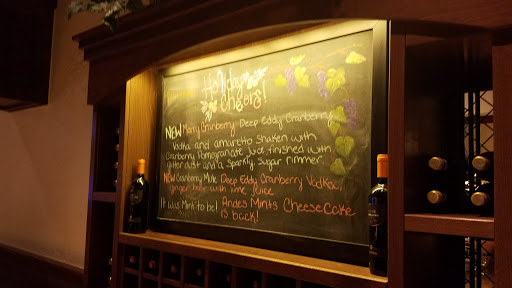 Holiday
Cheers!
NEW Merry Cranberry Deep Eddy Cranberry
Vodka and amaretto shaken with
Cranberry Pomegranate juice finished with
glitter dust and a sparkly sugar rimmer
NEW Cranberry Mule Deep Eddy Cranberry Vodka,
ginger beer with lime juice
It was Mint to be! Andes Mints Cheesecake
is back!